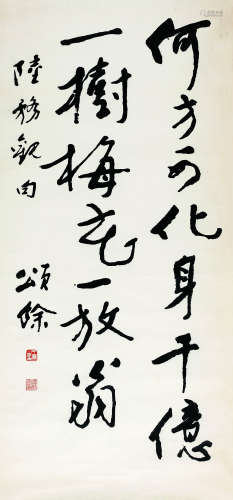 何方可化身千億
一樹梅花一放翁
陸務觀句
頌餘